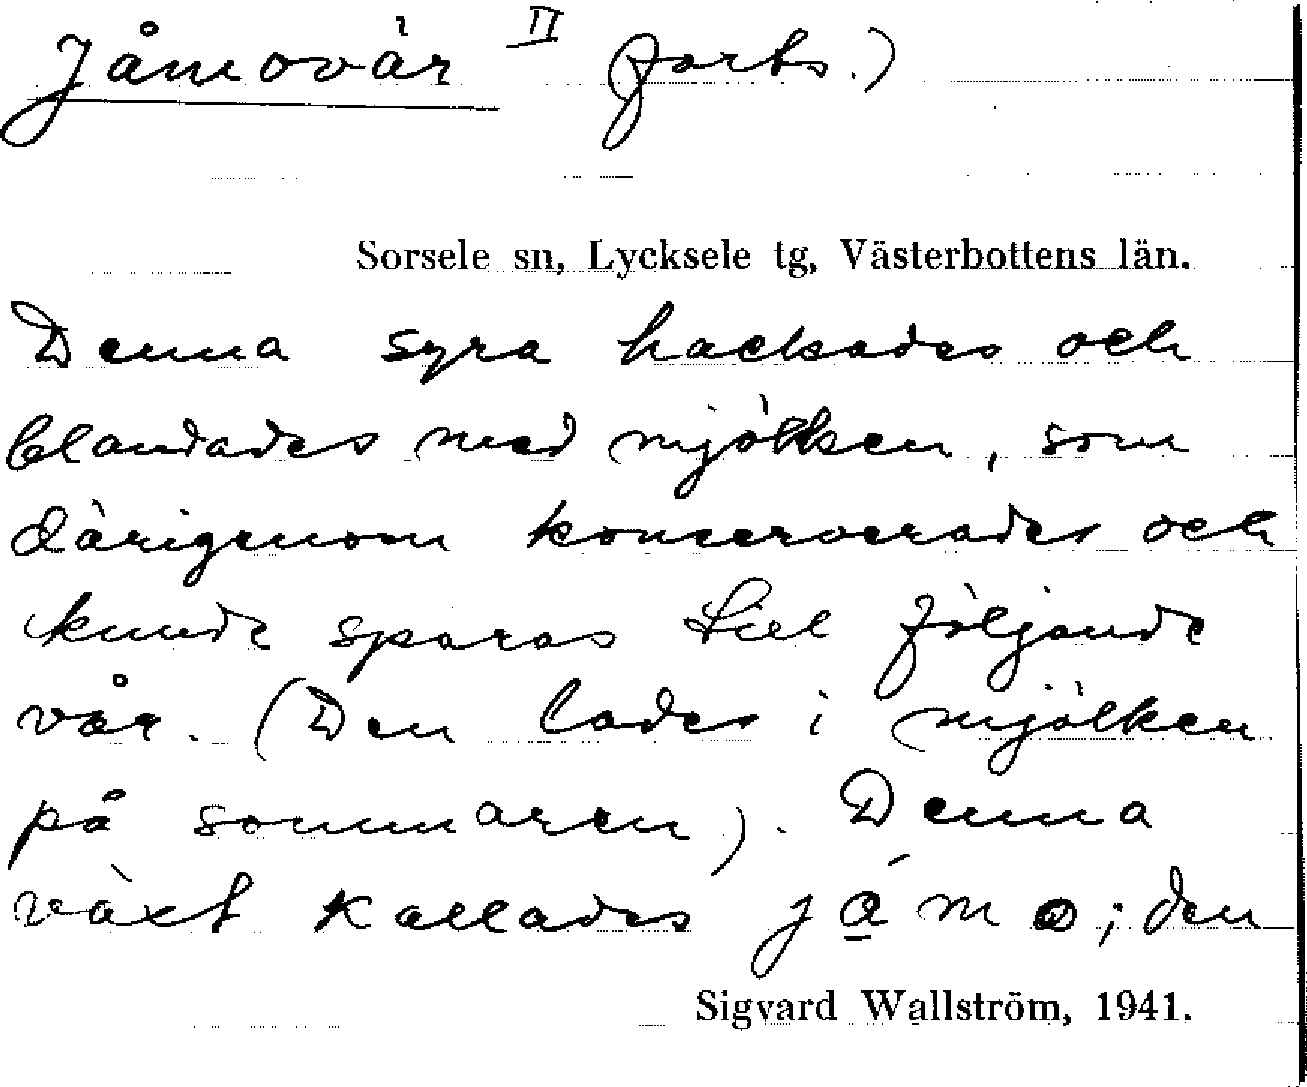 Jåmovär II forts.)
Sorsele sn, Lycksele tg, Västerbottens län.
Denna syra hackades och
blandades med mjölken, som
därigenom konserverades och
kunde sparas till följande
vår. (Den lades i mjölken
på sommaren). Denna
växt kallades jámo; den
Sigvard Wallström, 1941.